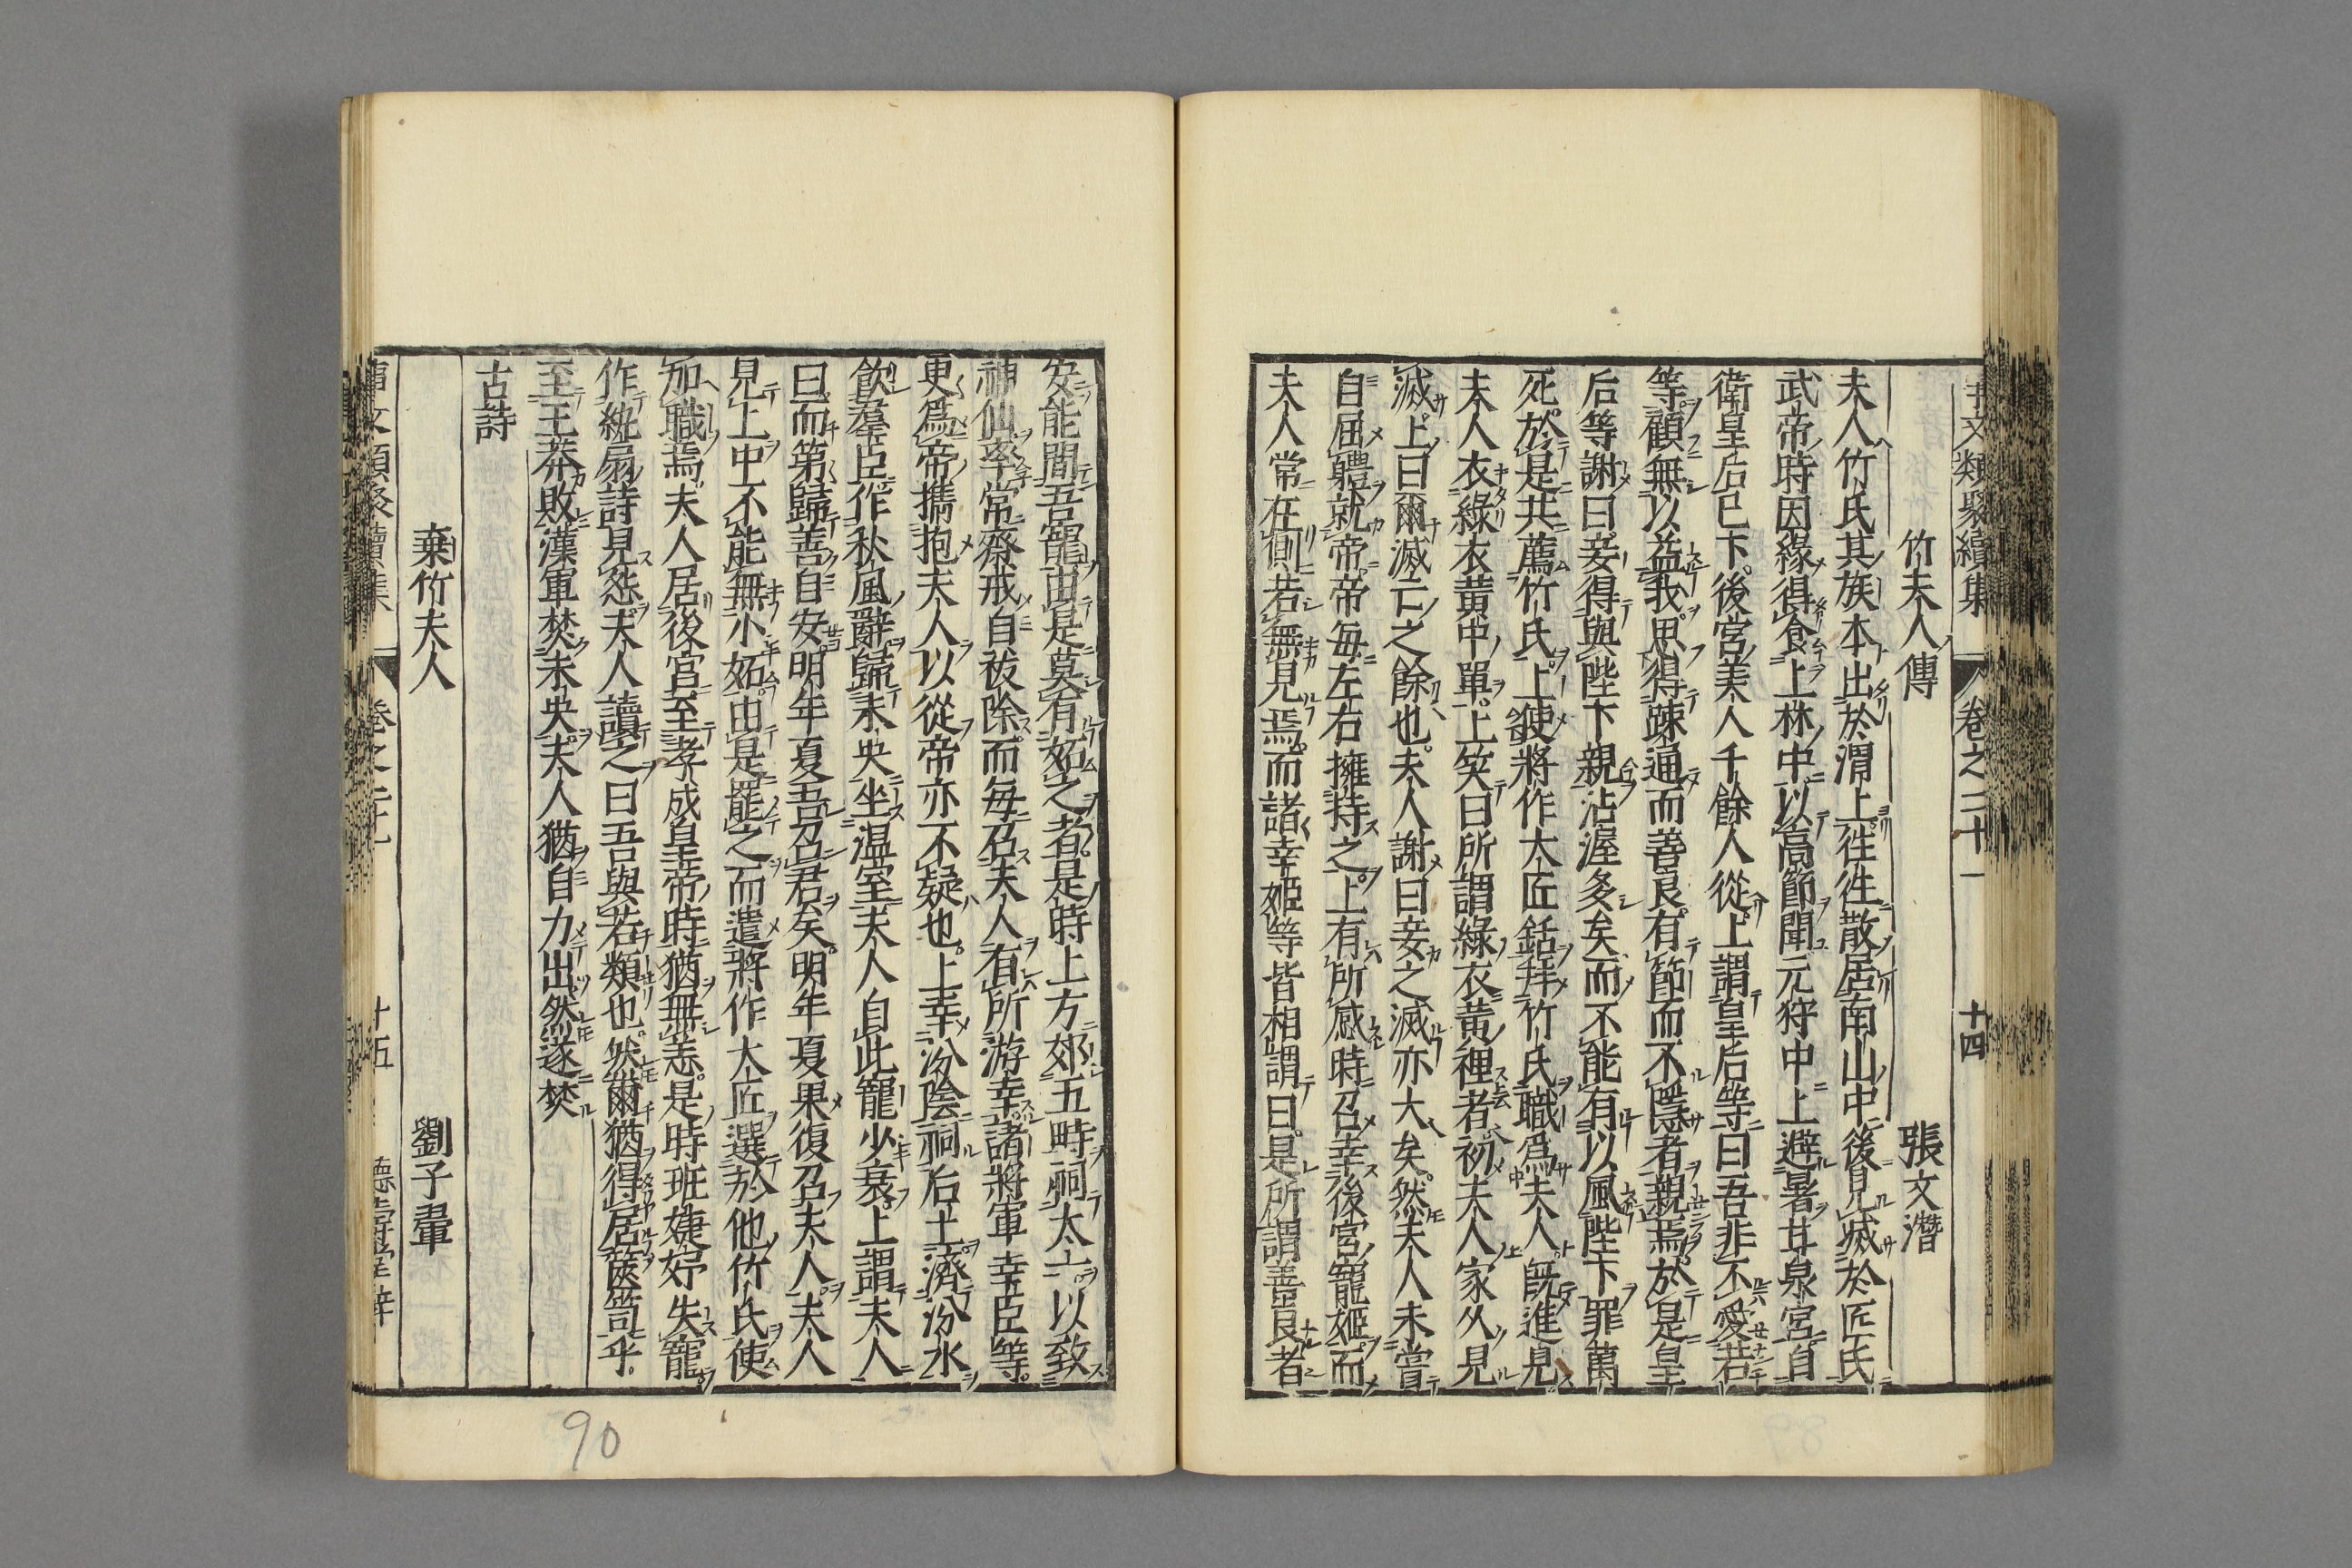 事文類聚續集 卷之二十一 十四
竹夫人傳 張文潛
夫人竹氏其族本出於渭上徃徃散居南山中後見滅於匠氏
武帝時因緣得食上林中以高節聞元狩中上避暑甘泉宮自
衛皇后已下後宮美人千餘人從上謂皇后等曰吾非不愛若
等顧無以益我思得疎通而善良有節而不隱者親焉於是皇
后等謝曰妾得與陛下親沾渥多矣而不能有以風陛下罪萬
死於是共薦竹氏上使將作大匠銛拜竹氏職爲夫人既進見
夫人衣綠衣黃中單上笑曰所謂綠衣黃裡者初夫人家久見
滅上曰爾滅亡之餘也夫人謝曰妾之滅亦大矣然夫人未嘗
自屈體就帝帝每左右擁持之上有所感時召幸後宮寵姬而
夫人常在側若無見焉而諸幸姬等皆相謂曰是所謂善良者
安能間吾寵由是莫有妬之者是時上方郊五畤祠太一以致
神仙率常齋戒自祓除而每召夫人有所游幸諸將軍幸臣等
更爲帝攜抱夫人以從帝亦不疑也上幸汾陰祠后土濟汾水
飲羣臣作秋風辭歸未央坐温室夫人自此寵少衰上謂夫人
曰而第歸善自安明年夏吾召君矣明年夏果復召夫人夫人
見上中不能無小妬由是罷之而遣將作大匠選於他竹氏使
加職焉夫人居後宮至孝成皇帝時猶無恙是時班婕妤失寵
作紈扇詩見怨夫人讀之曰吾與若類也然爾猶得居篋笥乎
至王莽敗漢軍焚未央夫人猶自力出然遂焚
古詩
棄竹夫人 劉子翬
事文類聚續集 卷之二十一 十五 德壽堂梓
90